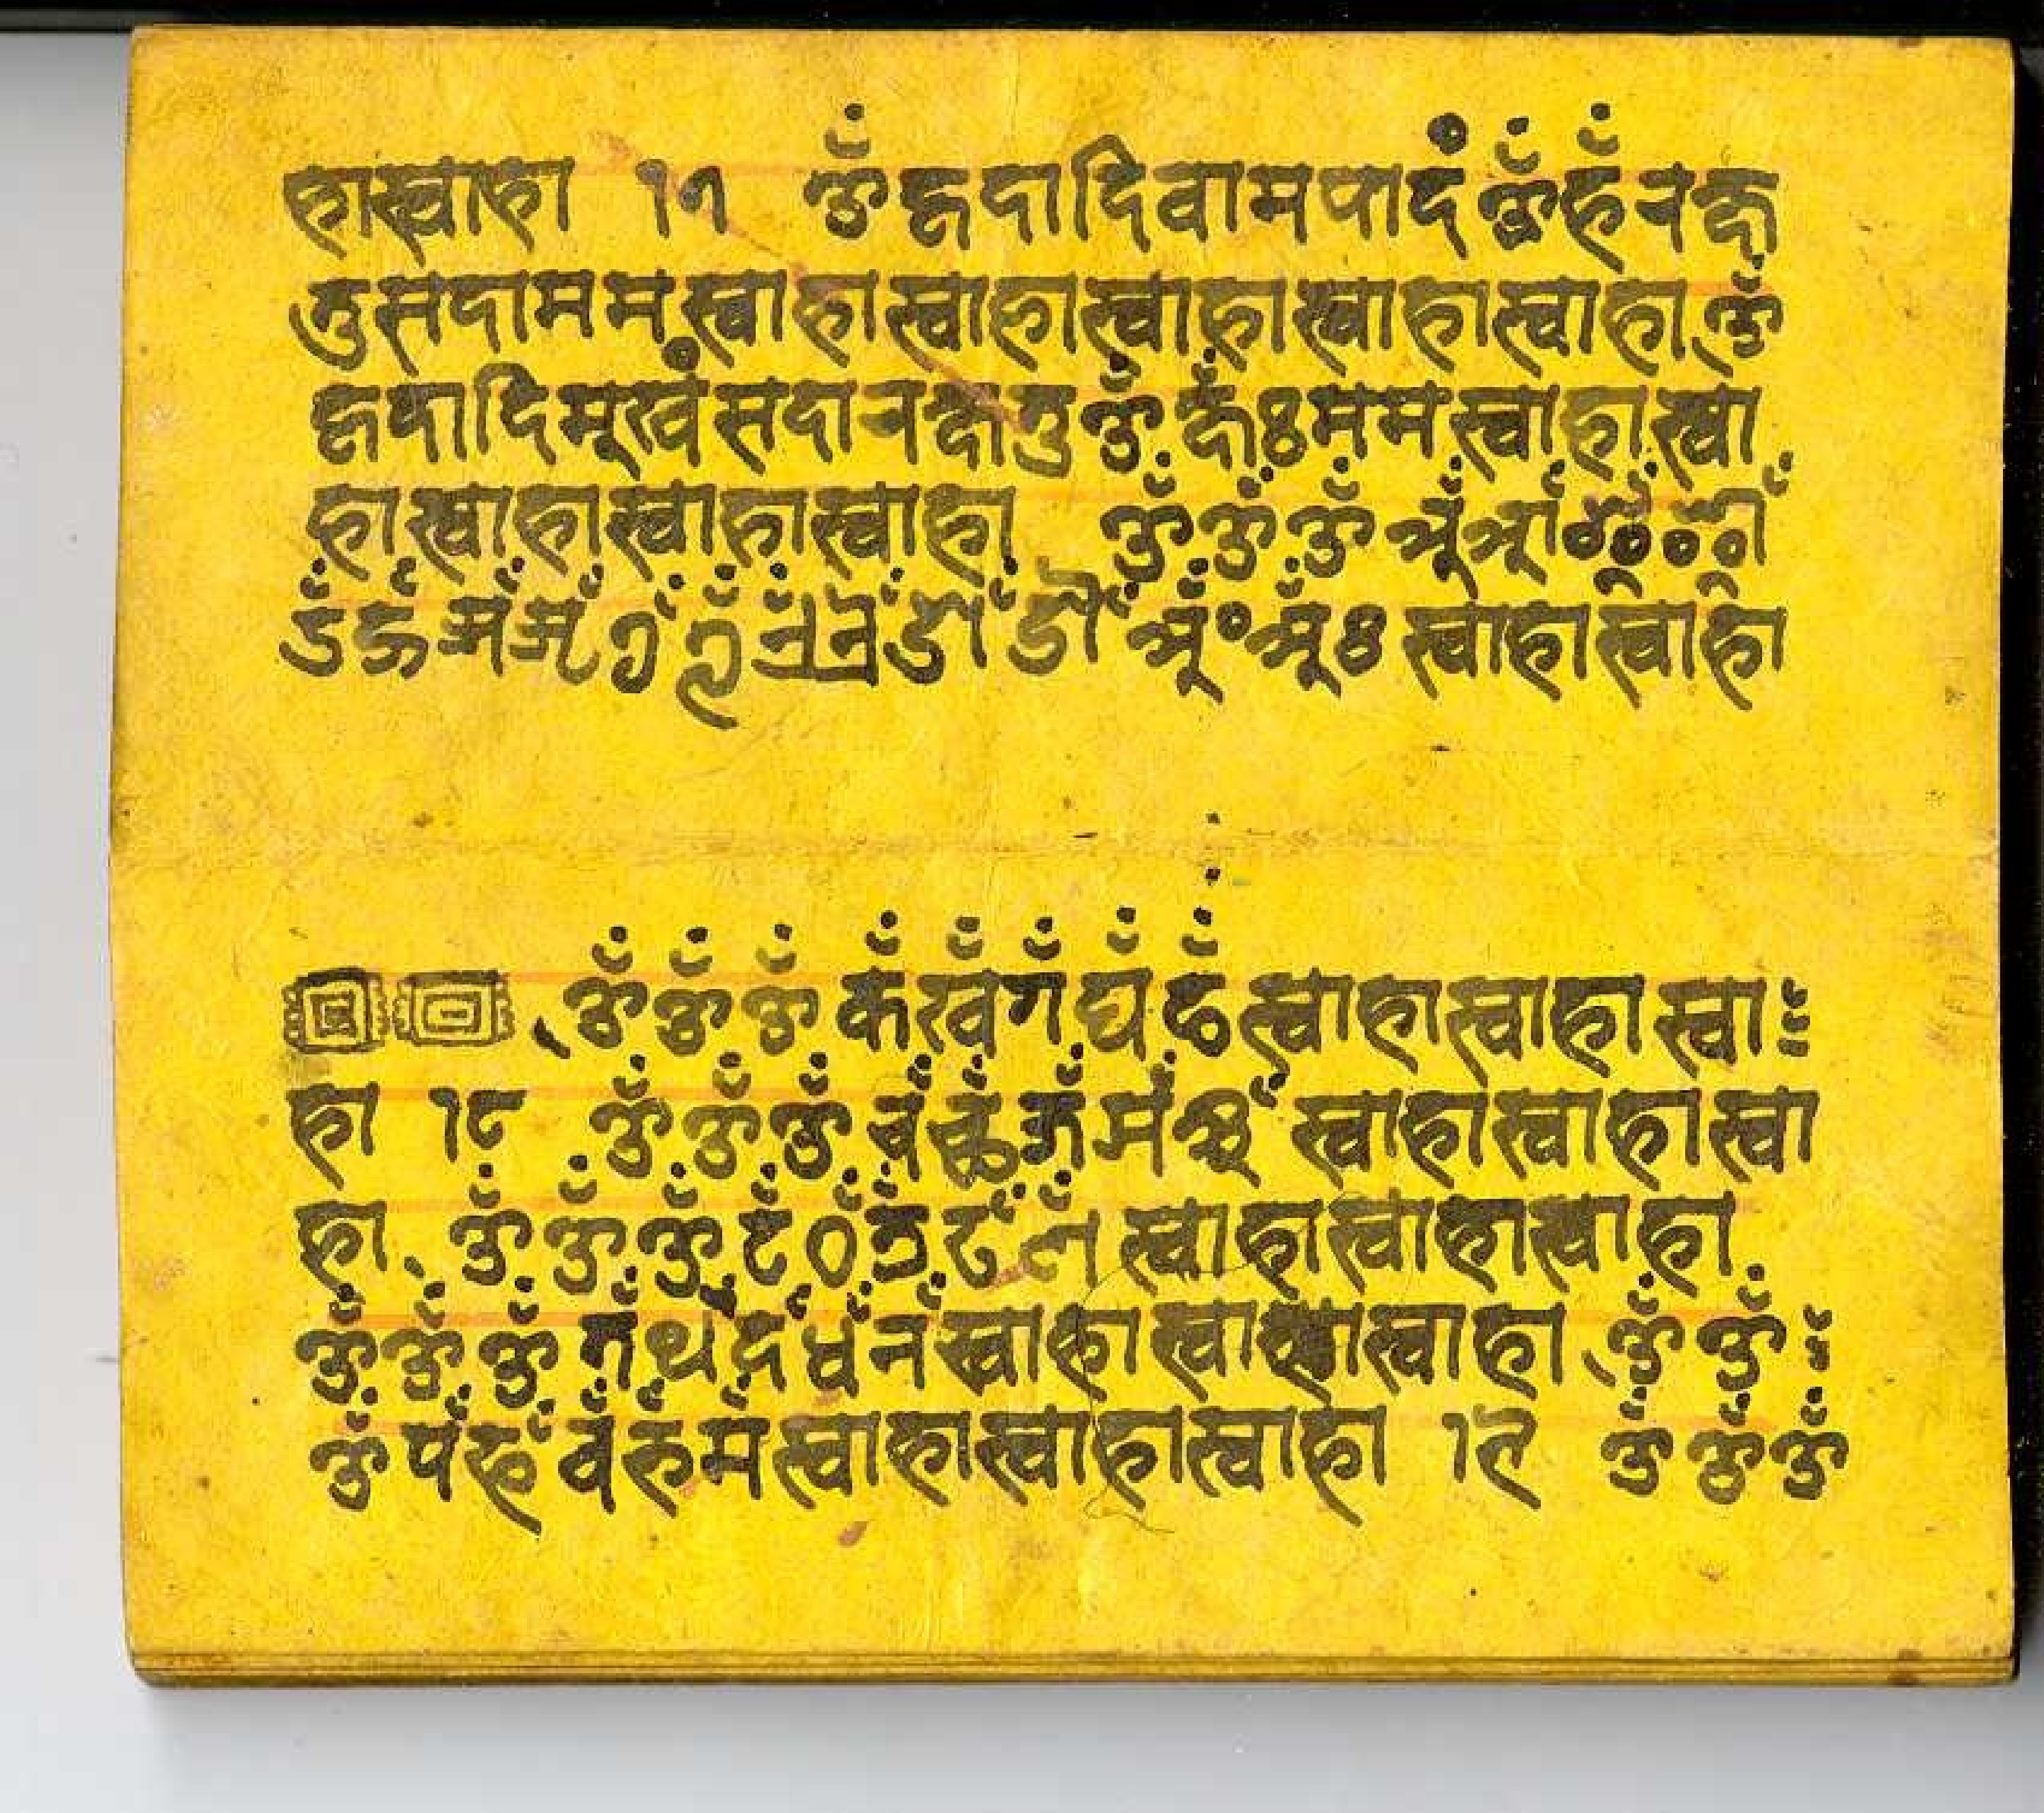 हास्वाहा १७ ॐ वामपादं ॐ हँ रक्ष
तुसदाममस्वाहास्वाहास्वाहास्वाहास्वाहा ॐ
मूखंसदारक्षतु ॐ क्षँः ममस्वाहास्वा
हास्वाहास्वाहास्वाहा ॐ ॐ ॐ अँ आँ इँ ईँ
उँ ऊँ ऋँ ॠँ ऌँ ॡँ एँ ऐँ ओँ औँ अँ॰ अँः स्वाहास्वाहा
ॐ ॐ ॐ कँ खँ गँ घँ ङँ स्वाहास्वाहास्वा
हा १८ ॐ ॐ ॐ चँ छँ जँ झँ ञँ स्वाहास्वाहास्वा
हा ॐ ॐ ॐ टँ ठँ डँ ढँ णँ स्वाहास्वाहास्वाहा
ॐ ॐ ॐ तँ थँ दँ धँ नँ स्वाहास्वाहास्वाहा ॐ ॐ
ॐ पँ फँ बँ भँ मँ स्वाहास्वाहास्वाहा १९ ॐ ॐ ॐ